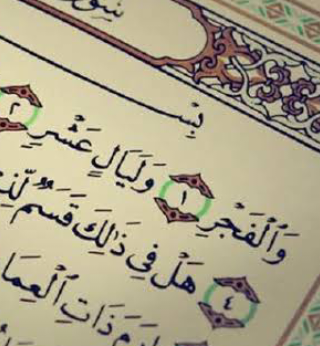 سورة
بس
وَٱلْفَجْرِ ١ وَلَيَالٍ عَشْرٍ ٢
٤ هَلْ فِى ذَٰلِكَ قَسَمٌ لِّذِ
ذَاتِ ٱلْعِمَا